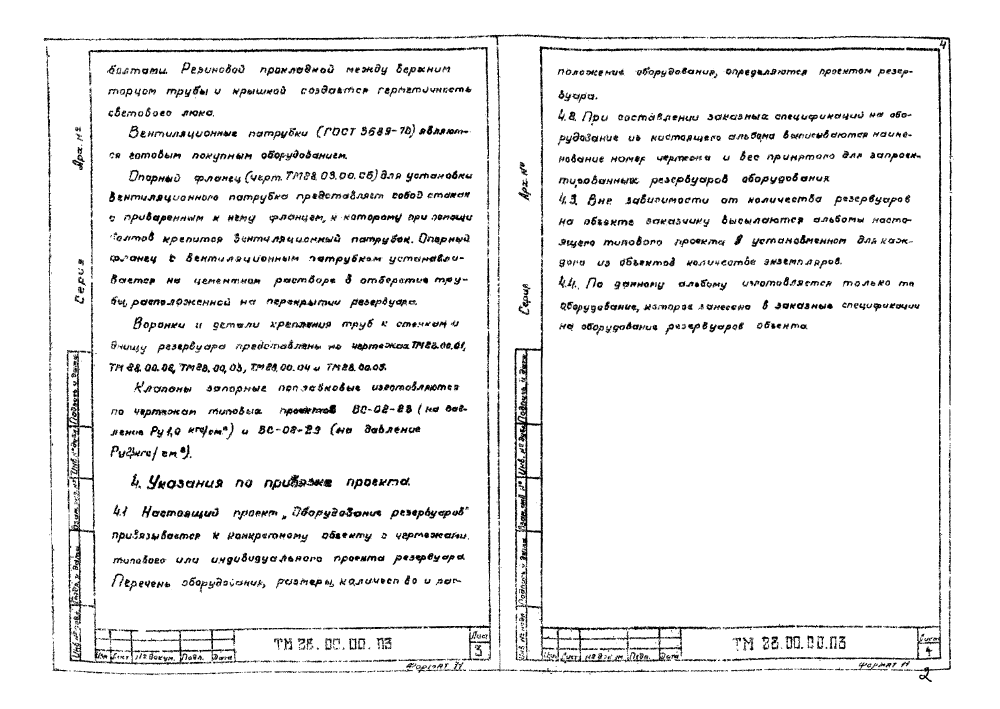 болтами. Резиновой прокладкой между верхним
торцом трубы и крышкой создается герметичность
светового люка.
Вентиляционные патрубки (ГОСТ 3689-70) являют-
ся готовым покупным оборудованием.
Опорный фланец (черт. ТМ28.09.00.СБ) для установки
вентиляционного патрубка представляет собой стакан
с приваренным к нему фланцем, к которому при помощи
болтов крепится вентиляционный патрубок. Опорный
фланец с вентиляционным патрубком устанавли-
вается на цементном растворе в отверстие тру-
бы, расположенной на перекрытии резервуара.
Воронки и детали крепления труб к стенкам и
днищу резервуара представлены на чертежах ТМ28.00.01,
ТМ 28.00.02, ТМ28.00.03, ТМ28.00.04 и ТМ28.00.05.
Клапаны запорные поплавковые изготовляются
по чертежам типовых проектов ВС-02-28 (на дав-
ление Ру 1,0 кгс/см²) и ВС-02-29 (на давление
кгс/см²).
4. Указания по привязке проекта.
4.1 Настоящий проект „Оборудование резервуаров"
привязывается к конкретному объекту с чертежами
типового или индивидуального проекта резервуара
Перечень оборудования, размеры, количество и рас-
Арх. №
Серия
Инв. № подл. Подп. и дата Взам. инв. № Инв. № дубл. Подпись и дата
Изм Лист № докум. Подп. Дата
ТМ 28.00.00.ПЗ
Лист
3
Формат 11
4
положение оборудования, определяются проектом резер-
вуара.
4.2. При составлении заказных спецификаций на обо-
рудование из настоящего альбома выписываются наиме-
нование номер чертежа и вес принятого для запроек-
тированных резервуаров оборудования
4.3. Вне зависимости от количества резервуаров
на объекте заказчику высылаются альбомы насто-
ящего типового проекта в установленном для каж-
дого из объектов количестве экземпляров.
4.4. По данному альбому изготовляется только то
оборудование, которое занесено в заказные спецификации
на оборудование резервуаров объекта
Арх. №
Серия
Инв. № подл. Подпись и дата Взам. инв. № Инв. № дубл. Подпись и дата
Изм Лист № докум Подп. Дата
ТМ 28.00.00.ПЗ
Лист
4
Формат 11
2